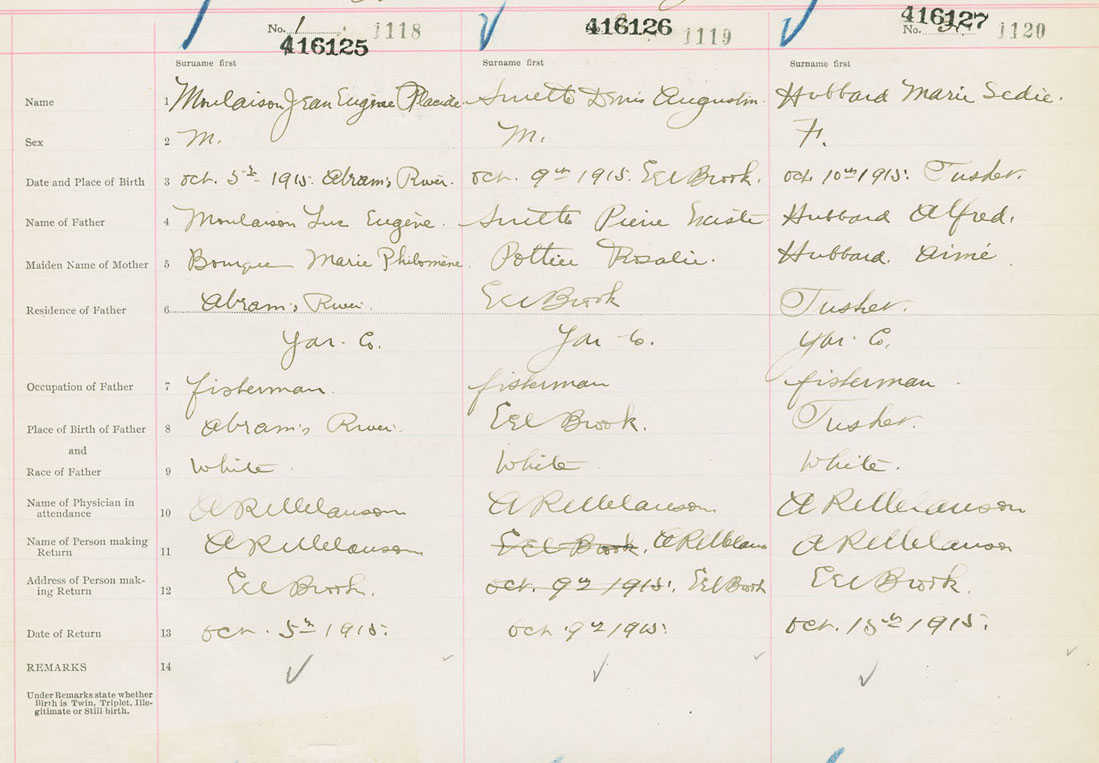 No. 1 1118 416126 1119 416127 1120
416125 No. 3
Surname first Surname first Surname first
Name 1 Moulaison Jean Eugène Placide Surette Denis Augustin Hubbard Marie Sedie.
Sex 2 M. M. F.
Date and Place of Birth 3 Oct. 5th 1915. Abram's River. Oct. 9th 1915. Eel Brook. Oct 10th 1915. Tusket.
Name of Father 4 Moulaison Luc Eugène. Surette Pierre Hubbard Alfred.
Maiden Name of Mother 5 Bourque Marie Philomène Pottier Rosalie. Hubbard. Aimé
Residence of Father 6 Abram's River. Eel Brook Tusket.
Yar. Co. Yar Co. Yar. Co.
Occupation of Father 7 fisherman. fisherman fisherman
Place of Birth of Father 8 Abram's River. Eel Brook. Tusket.
and
Race of Father 9 White White White.
Name of Physician in
attendance 10 A R Melanson A R Melanson A R Melanson
Name of Person making
Return 11 A R Melanson Eel Brook. A R Melans A R Melanson
Address of Person mak-
ing Return 12 Eel Brook. Oct. 9th 1915. Eel Brook Eel Brook.
Date of Return 13 Oct. 5th 1915. Oct 9th 1915. Oct. 15th 1915.
REMARKS 14
Under Remarks state whether
Birth is Twin, Triplet, Ille-
gitimate or Still birth.